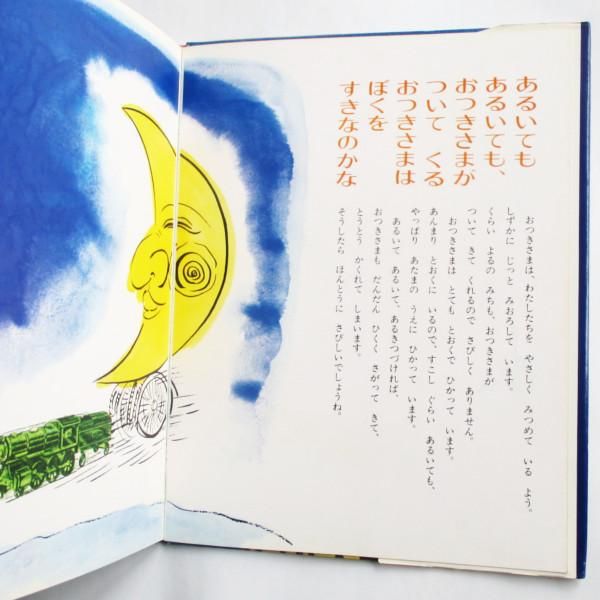 あるいても
あるいても、
おつきさまが
ついて くる
おつきさまは
ぼくを
すきなのかな
おつきさまは、わたしたちを やさしく みつめて いる よう。
しずかに じっと みおろして います。
くらい よるの みちも、おつきさまが
ついて きて くれるので さびしく ありません。
おつきさまは とても とおくで ひかって います。
あんまり とおくに いるので、すこし ぐらい あるいても、
やっぱり あたまの うえに ひかって います。
あるいて あるいて、あるきつづければ、
おつきさまも だんだん ひくく さがって きて、
とうとう かくれて しまいます。
そうしたら ほんとうに さびしいでしょうね。